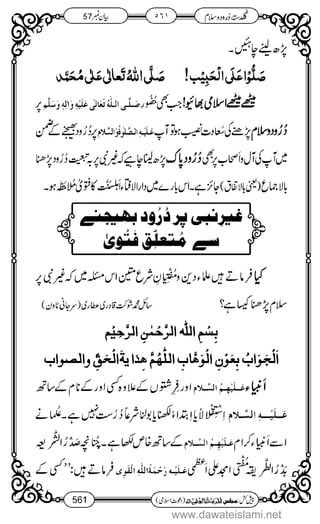 گلدستہ دُرود و سلام ٥٦١ بیان نمبر 57
پڑھ لینے چاہئیں۔
صَلُّوْا عَلَی الْحَبِیْب! صَلَّی اللہُ تَعَالٰی عَلٰی مُحَمَّد
میٹھے میٹھے اسلامی بھائیو! جب بھی حُضُور صَلَّی اللہُ تَعَالٰی عَلَیْہِ وَاٰلِہٖ وَسَلَّم پر
دُرُود و سلام پڑھنے کی سعادت نصیب ہو تو آپ عَلَیْہِ الصَّلٰوۃُ وَالسَّلَام پر دُرُود بھیجنے کے ضمن
میں آپ کی آل و اصحاب پر بھی دُرُودِ پاک پڑھ لینا چاہئے کہ غیرِ نبی پر تبعیت میں دُرُود پڑھنا
بالاجماع (یعنی بالاتفاق) جائز ہے۔ اس بارے میں دارالافتاء اہلسنّت کا فتویٰ مُلاحَظہ ہو۔
غیرِ نبی پر دُرُود بھیجنے
سے مُتعلِّق فَتْویٰ
کیا فرماتے ہیں علماءِ دین و مُفتیانِ شرع متین اس مسئلہ میں کہ غیرِ نبی پر
سلام پڑھنا کیسا ہے؟ سائل محمد شوکت قادری عطاری (سرجانی ٹاؤن)
بِسْمِ اللہِ الرَّحْمٰنِ الرَّحِیْمِ
اَلْجَوَابُ بِعَوْنِ الْوَھَّابِ اَللّٰھُمَّ ھدَایَۃَ الْحَقِّ وَالصواب
اَنبیاء عَلَیْہِمُ السَّلَام اور فِرِشتوں کے علاوہ کسی اور کے نام کے ساتھ
عَلَیْہِ السَّلَام اِسْتِقلالاً یا ابتداءً لکھنا یا بولنا شرعاً دُرُست نہیں ہے۔ علمانے
اسے انبیاء کرام عَلَیْہِمُ السَّلَام کے ساتھ خاص لکھا ہے۔ چنانچہ صَدرُ الشَّریعہ
بَدرُ الطَّریقہ مفتی امجد علی اعظمی عَلَیْہِ رَحْمَۃُ اللہِ الْقَوِی فرماتے ہیں: ’’کسی کے
561
www.dawateislami.net